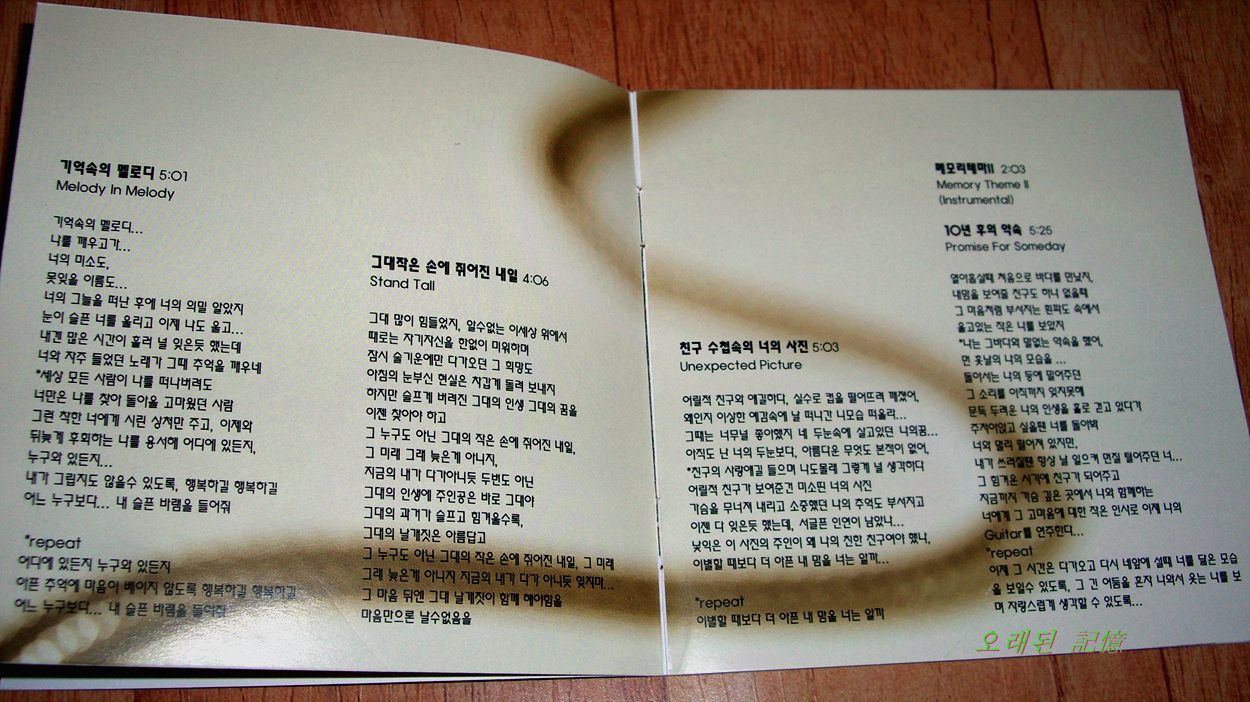 기억속의 멜로디 5:01
Melody In Melody
기억속의 멜로디...
나를 깨우고가...
너의 미소도,
못잊을 이름도...
너의 그늘을 떠난 후에 너의 의밀 알았지
눈이 슬픈 너를 울리고 이제 나도 울고...
내겐 많은 시간이 흘러 널 잊은듯 했는데
너와 자주 들었던 노래가 그때 추억을 깨우네
*세상 모든 사람이 나를 떠나버려도
너만은 나를 찾아 돌아올 고마웠던 사람
그런 착한 너에게 시린 상처만 주고, 이제와
뒤늦게 후회하는 나를 용서해 어디에 있든지,
누구와 있든지...
내가 그립지도 않을수 있도록, 행복하길 행복하길
어느 누구보다... 내 슬픈 바램을 들어줘
*repeat
어디에 있든지 누구와 있든지
아픈 추억에 마음이 베이지 않도록 행복하길 행복하길
어느 누구보다... 내 슬픈 바램을 들어줘
그대작은 손에 쥐어진 내일 4:06
Stand Tall
그대 많이 힘들었지, 알수없는 이세상 위에서
때로는 자기자신을 한없이 미워하며
잠시 술기운에만 다가오던 그 희망도
아침의 눈부신 현실은 차갑게 돌려 보내지
하지만 슬프게 버려진 그대의 인생 그대의 꿈을
이젠 찾아야 하고
그 누구도 아닌 그대의 작은 손에 쥐어진 내일,
그 미래 그래 늦은게 아니지,
지금의 내가 다가아니듯 두번도 아닌
그대의 인생에 주인공은 바로 그대야
그대의 과거가 슬프고 힘겨울수록,
그대의 날개짓은 아름답고
그 누구도 아닌 그대의 작은 손에 쥐어진 내일, 그 미래
그래 늦은게 아니지 지금의 내가 다가 아니듯 잊지마...
그 마음 뒤엔 그대 날개짓이 함께 해야함을
마음만으론 날수없음을
친구 수첩속의 너의 사진 5:03
Unexpected Picture
어릴적 친구와 얘길하다, 실수로 컵을 떨어뜨려 깨졌어,
왜인지 이상한 예감속에 날 떠나간 니모습 떠올라...
그때는 너무널 좋아했지 네 두눈속에 살고있던 나의꿈...
아직도 난 너의 두눈보다, 아름다운 무엇도 본적이 없어,
*친구의 사랑얘길 들으며 나도몰래 그렇게 널 생각하다
어릴적 친구가 보여준건 미소띤 너의 사진
가슴을 무너져 내리고 소중했던 나의 추억도 부서지고
이젠 다 잊은듯 했는데, 서글픈 인연이 남았나...
낯익은 이 사진의 주인이 왜 나의 친한 친구여야 했나,
이별할 때보다 더 아픈 내 맘을 너는 알까...
*repeat
이별할 때보다 더 아픈 내 맘을 너는 알까
메모리테마II 2:03
Memory Theme II
(Instrumental)
10년 후의 약속 5:25
Promise For Someday
열아홉살때 처음으로 바다를 만났지,
내맘을 보여줄 친구도 하나 없을때
그 마음처럼 부서지는 흰파도 속에서
울고있는 작은 나를 보았지
*나는 그바다와 말없는 약속을 했어,
먼 훗날의 나의 모습을 ...
돌아서는 나의 등에 밀어주던
그 소리를 아직까지 잊지못해
문득 두려운 나의 인생을 홀로 걷고 있다가
주저아앉고 싶을땐 너를 돌아봐
너와 멀리 떨어져 있지만,
내가 쓰러질땐 항상 날 일으켜 먼질 털어주던 너...
그 힘겨운 시기에 친구가 되어주고
지금까지 가슴 깊은 곳에서 나와 함께하는
너에게 그 고마움에 대한 작은 인사로 이제 나의
Guitar를 연주한다...
*repeat
이제 그 시간은 다가오고 다시 네앞에 설때 너를 닮은 모습
을 보일수 있도록, 그 긴 어둠을 혼자 나와서 웃는 나를 보
며 자랑스럽게 생각할 수 있도록...
오래된 記憶